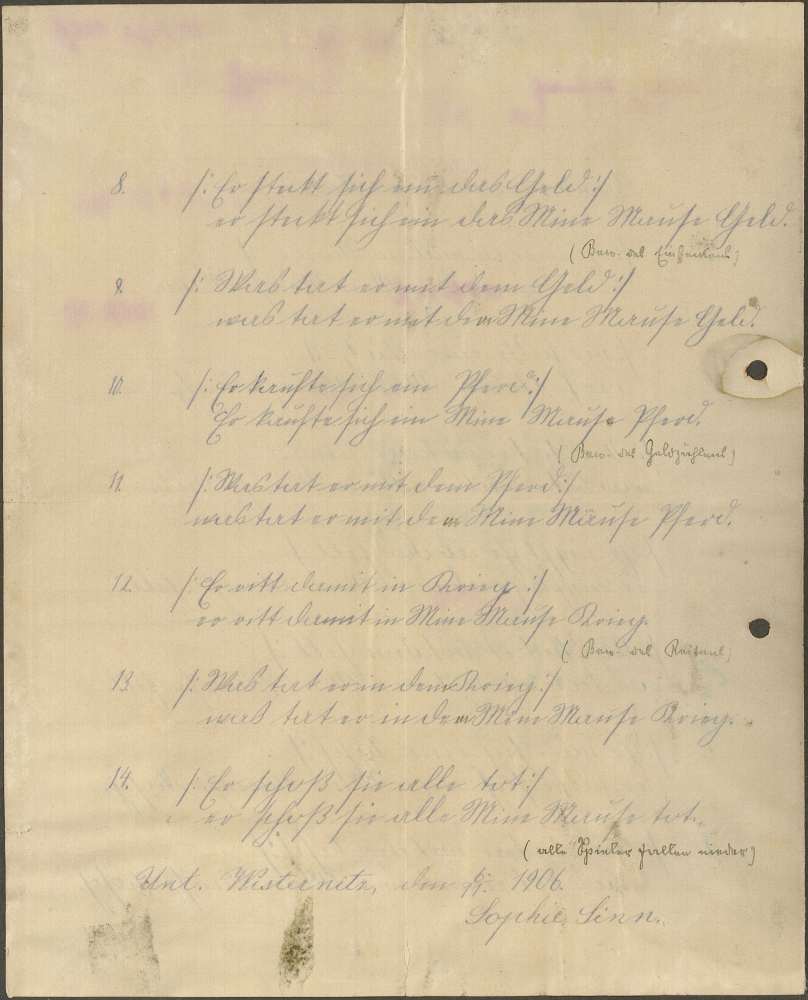 8. /: Er steckt sich ein das Geld :/
er steckt sich ein das Mine Mause Geld.
(Bew. des Einsteckens)
9. /: Was tut er mit dem Geld :/
was tut er mit dem Mine Mause Geld.
10. /: Er kaufte sich ein Pferd :/
Er kaufte sich ein Mine Mause Pferd.
(Bew. des Geldzählens)
11. /: Was tut er mit dem Pferd :/
was tut er mit dem Mine Mause Pferd.
12. /: Er ritt damit in Krieg :/
er ritt damit in Mine Mause Krieg.
(Bew. des Reitens)
13. /: Was tut er in dem Krieg :/
was tut er in dem Mine Mause Krieg.
14. /: Er schoß sie alle tot :/
er schoß sie alle Mine Mause tot.
(alle Spieler fallen nieder)
Unt. Wisternitz, den 1906.
Sophie Sinn.